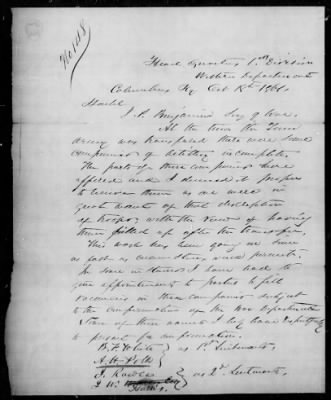 No 148
Head Quarters 1st Division
Western Department
Columbus Ky Oct 1861
J. P. Benjamin Secy of War
At the time the Tenn
army was transferred there were some
companies of artillery incomplete
The parts of these companies were
offered and I deemed it proper
to receive them as we were in
great want of that description
of troops with the view of having
them filled up after the transfer.
This work has been going on since
as fast as circumstances would permit.
In some instances I have had to
give appointments to parties to fill
vacancies in these companies subject
to the confirmation of the War Department
I have respectfully
to present for confirmation.
B. F. White } as 1st Lieutenants,
A. H. Polk
J. Rawles } as 2d Lieutenants.
J. W.